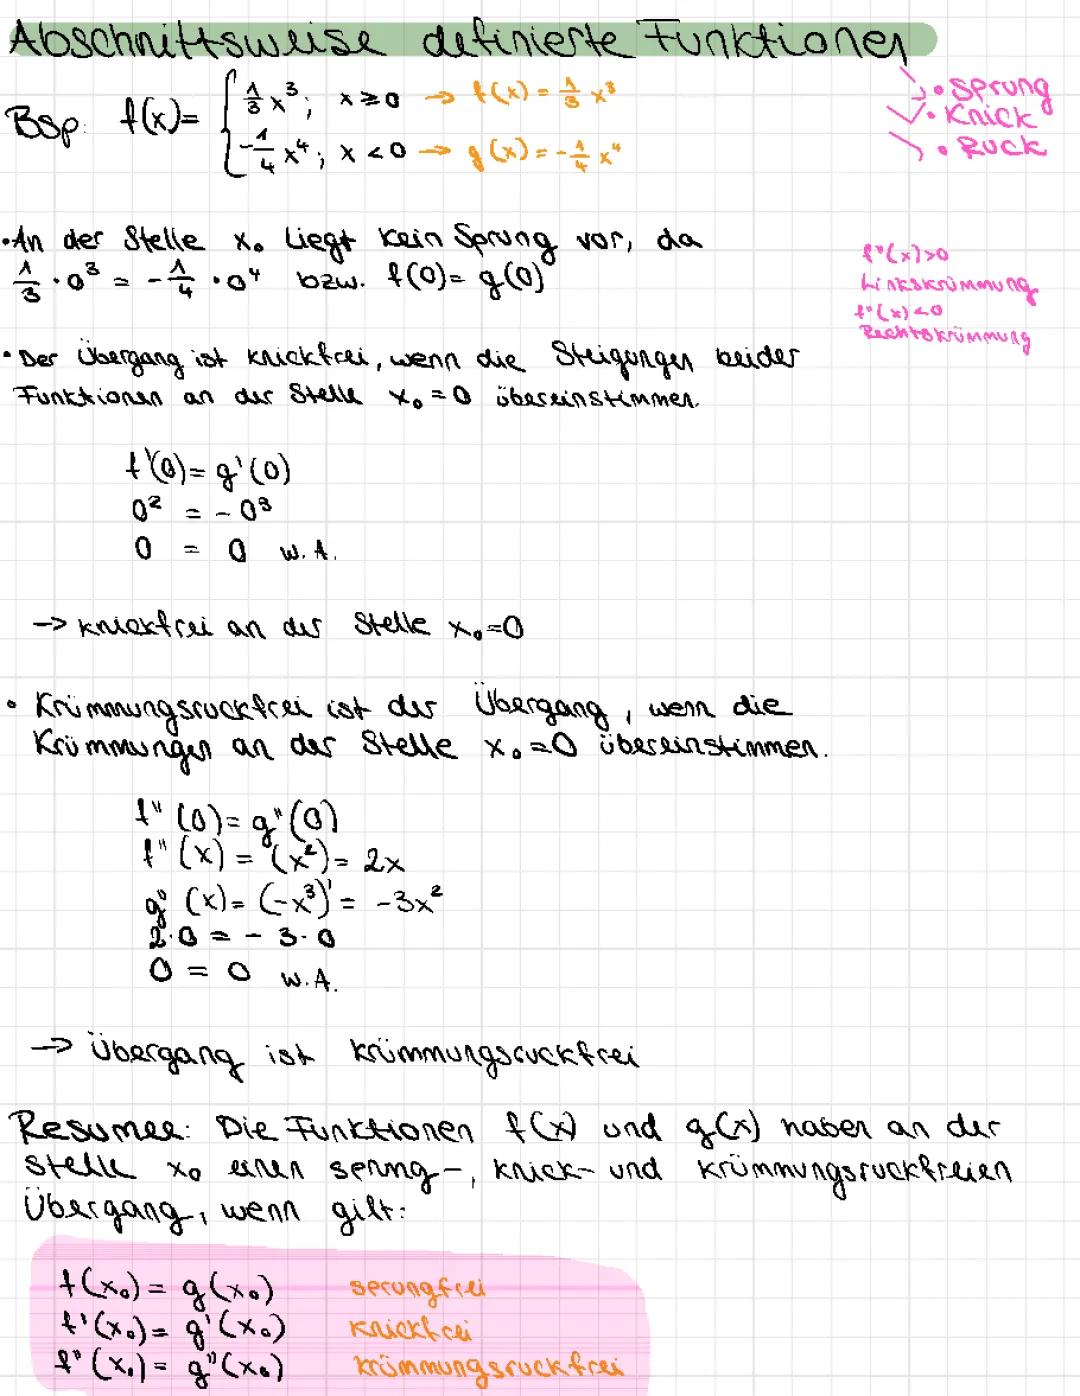 Abschnittsweise definierte Funktionen
Bsp: f(x)= { 1/3 x³; x≥0 → f(x) = 1/3 x³
-1/4 x⁴; x<0 → g(x) = -1/4 x⁴
• Sprung
• Knick
• Ruck
• An der Stelle x₀ liegt kein Sprung vor, da
1/3 · 0³ = -1/4 · 0⁴ bzw. f(0) = g(0)
f"(x)>0
Linkskrümmung
f"(x)<0
Rechtskrümmung
• Der Übergang ist knickfrei, wenn die Steigungen beider
Funktionen an der Stelle x₀ = 0 übereinstimmen.
f'(0) = g'(0)
0² = -0³
0 = 0 w.A.
→ knickfrei an der Stelle x₀=0
• Krümmungsruckfrei ist der Übergang, wenn die
Krümmungen an der Stelle x₀=0 übereinstimmen.
f"(0) = g"(0)
f"(x) = (x²)' = 2x
g"(x) = (-x³)' = -3x²
2·0 = -3·0
0 = 0 w.A.
→ Übergang ist krümmungsruckfrei
Resumee: Die Funktionen f(x) und g(x) haben an der
Stelle x₀ einen sprung-, knick- und krümmungsruckfreien
Übergang, wenn gilt:
f(x₀) = g(x₀) sprungfrei
f'(x₀) = g'(x₀) knickfrei
f"(x₀) = g"(x₀) krümmungsruckfrei